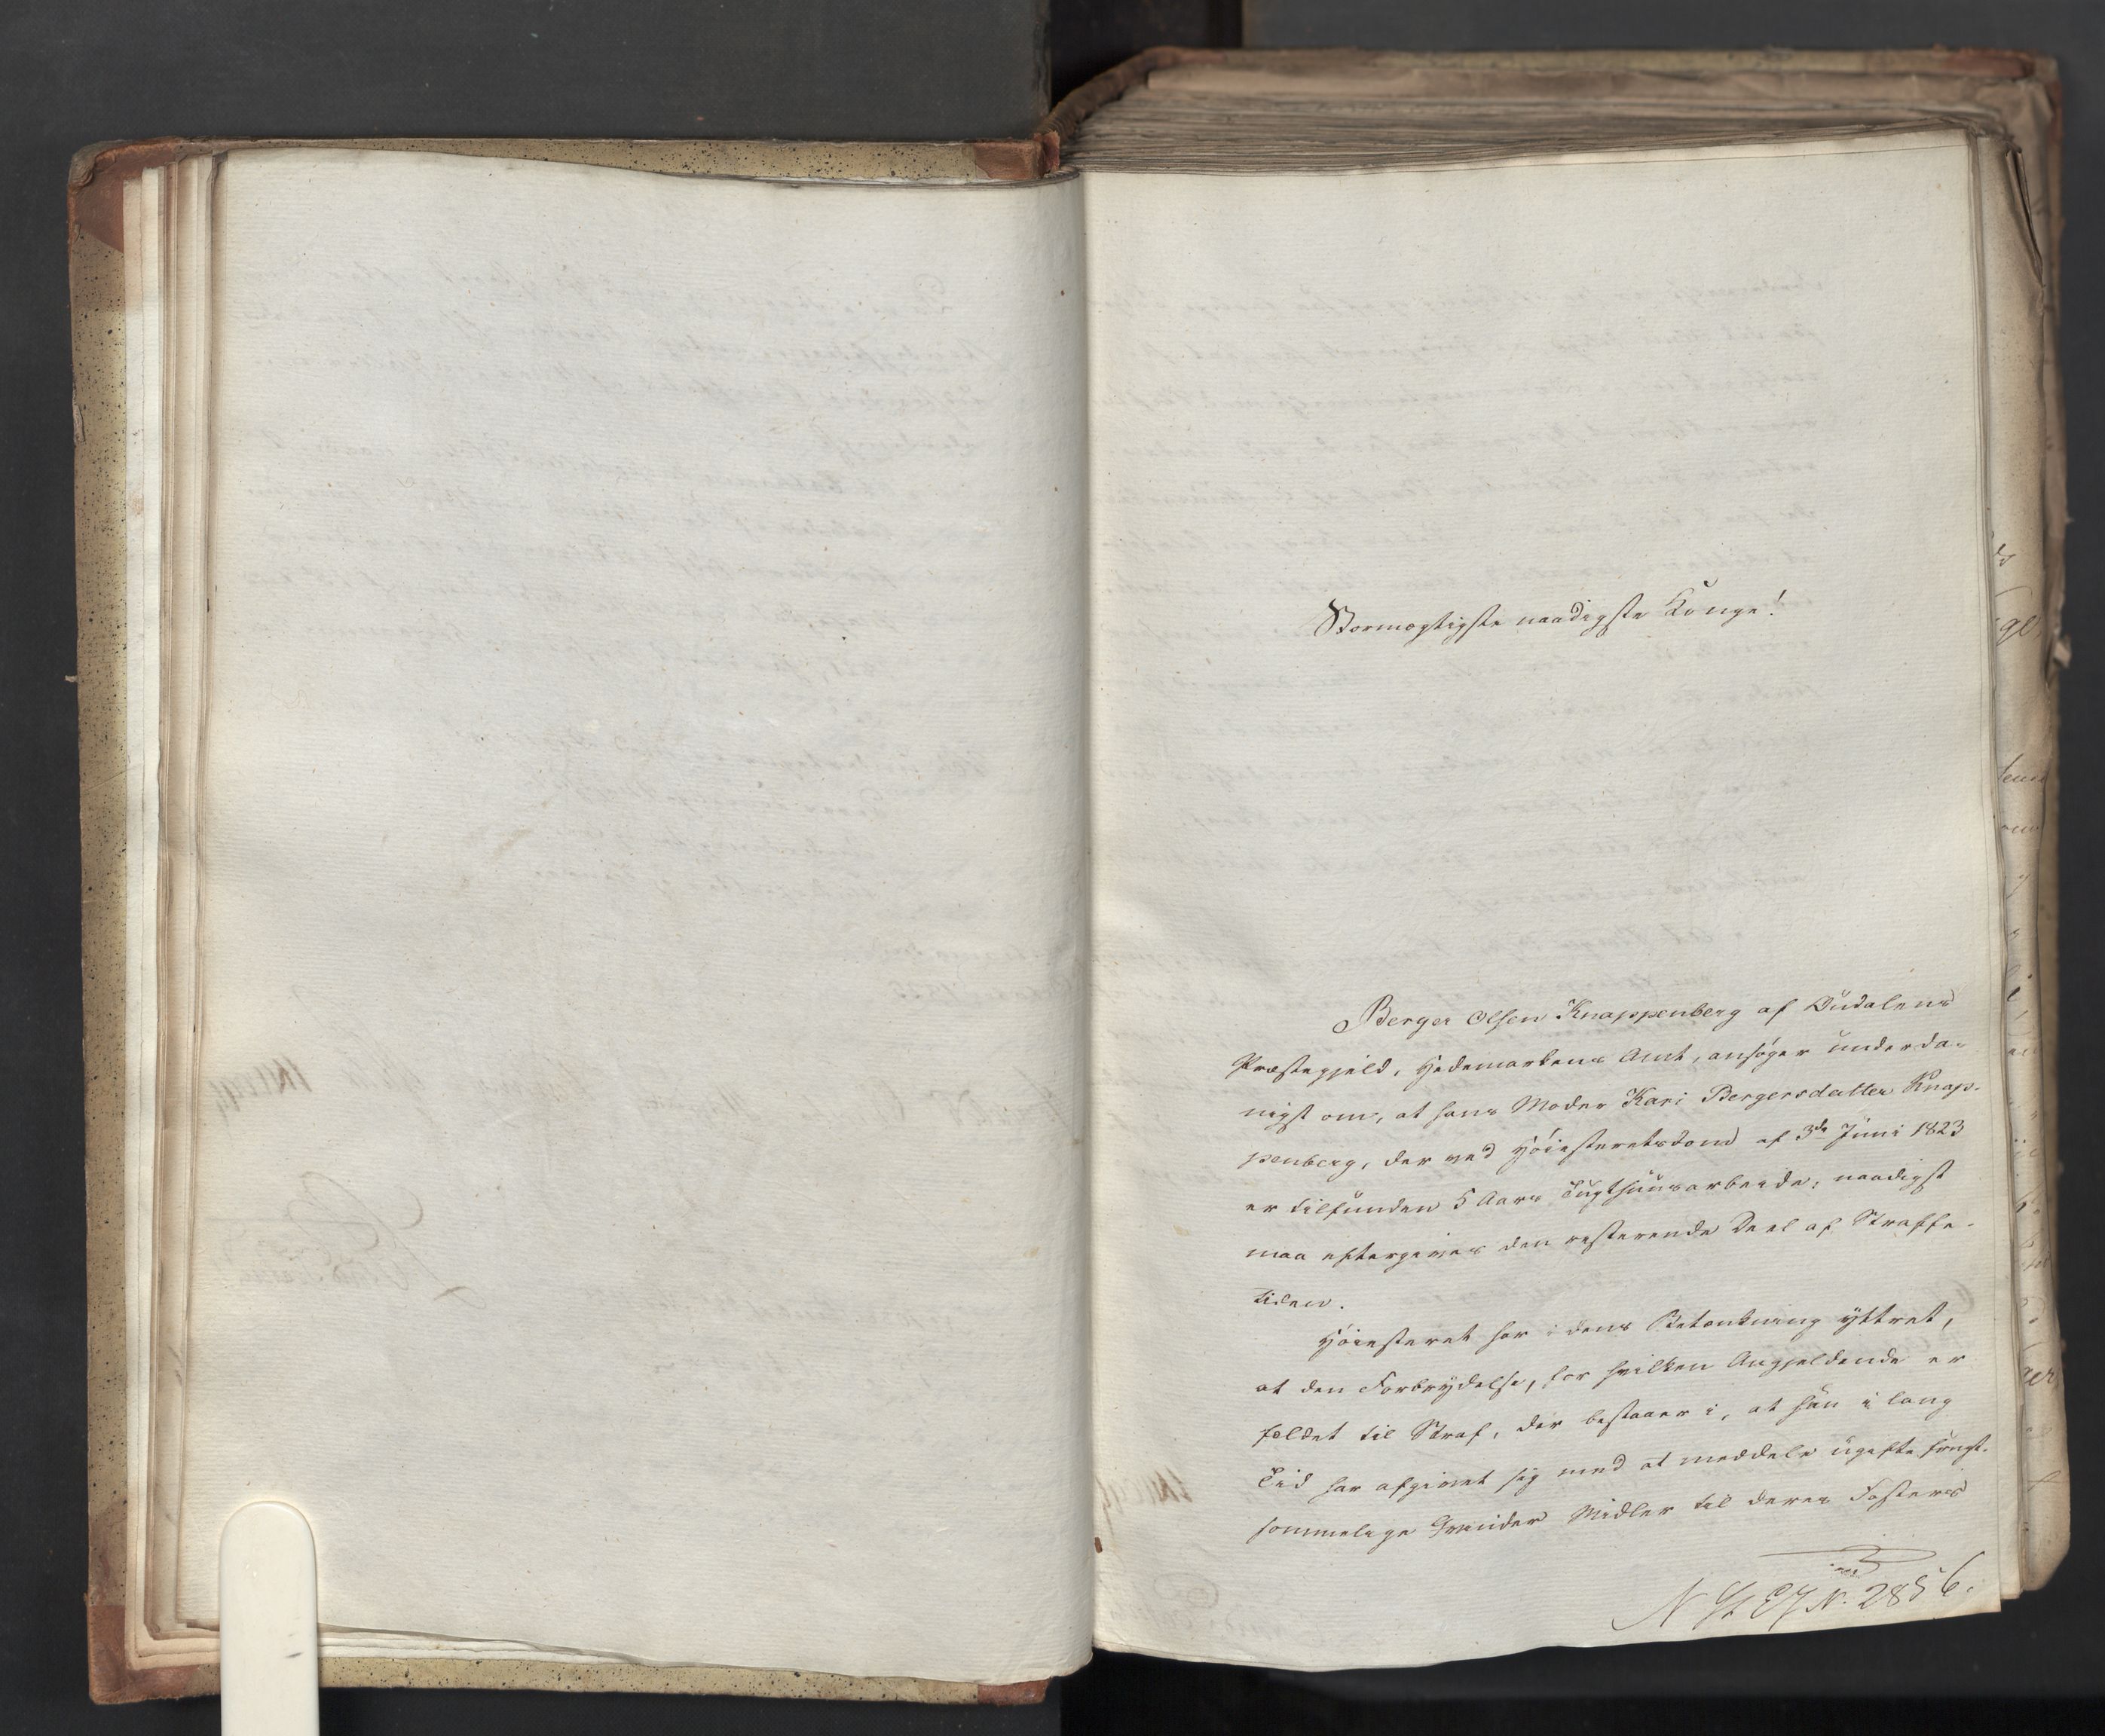 Stormægtigste naadigste Konge!
Berger Olsen Knappenberg af Oudalens
Præstegjeld, Hedemarkens Amt, ansøger underda-
nigst om, at hans Moder Kari Bergersdatter Knap-
penberg, der ved Høiesteretsdom af 3de Juni 1823
er tilfunden 5 Aars Tugthuusarbeide, naadigst
maa eftergives den resterende Deel af Straffe-
tiden.
Høiesteret har i dens Betænkning yttret,
at den Forbrydelse, for hvilken Angjeldende er
fældet til Straf, der bestaaer i, at hun i lang
Tid har afgivet sig med at meddele ugifte frugt-
sommelige Qvinder Midler til deres Fosters
N. 2856.